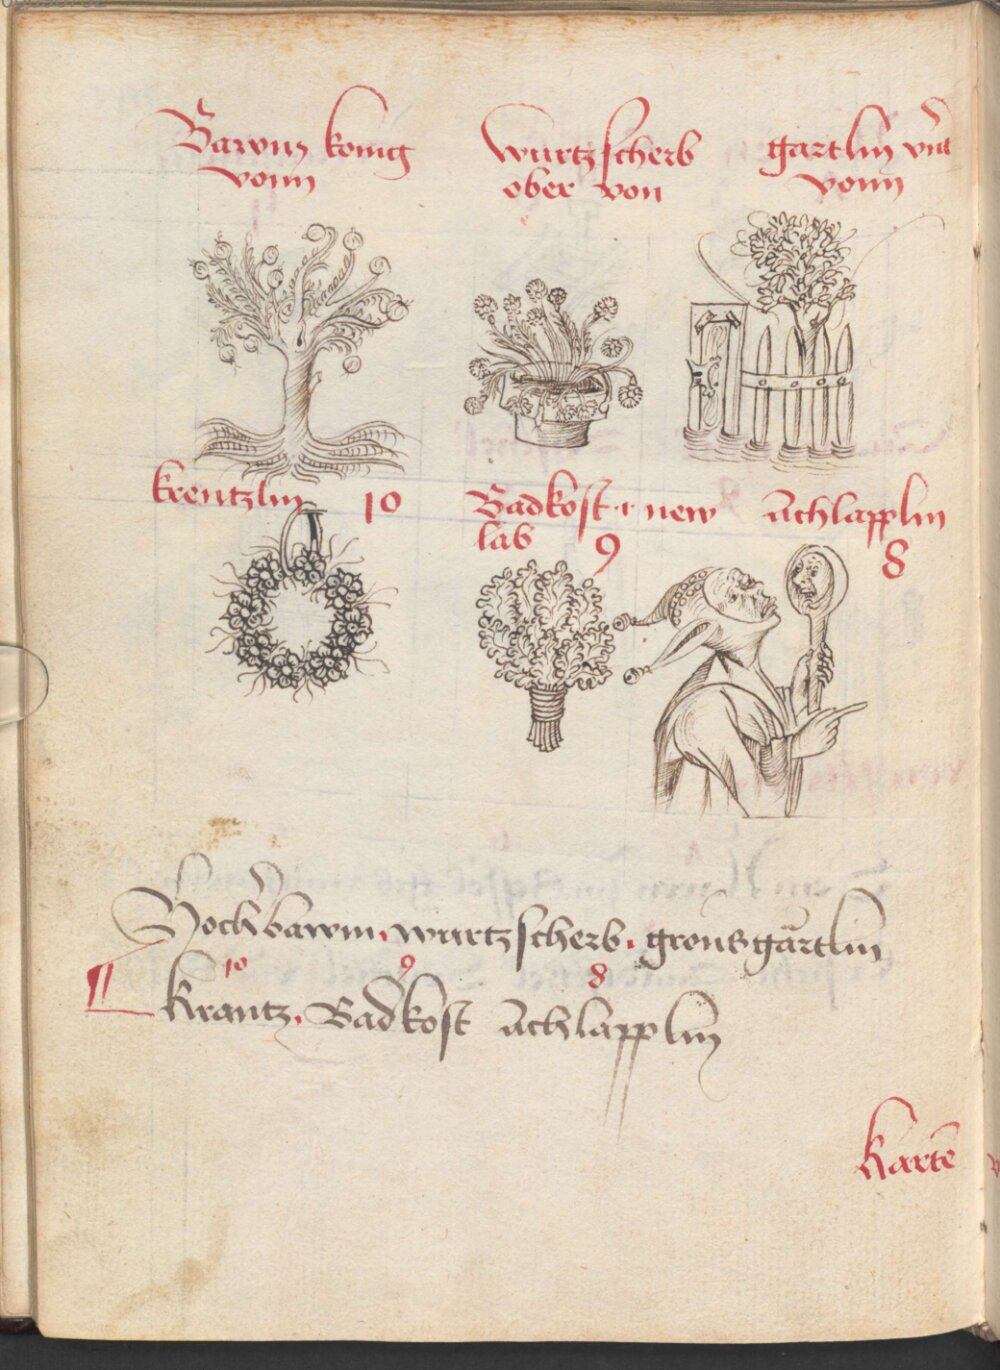 Bawm konig
vonn
wurtzscherb
ober von
gartlin vnd
vonn
krentzlin 10
Badkost · new
lab 9
Achlapplin
8
Hoch bawm · wurtzscherb · grons gartlin
10 9 8
Krantz · Badkost Achlapplin
Karte